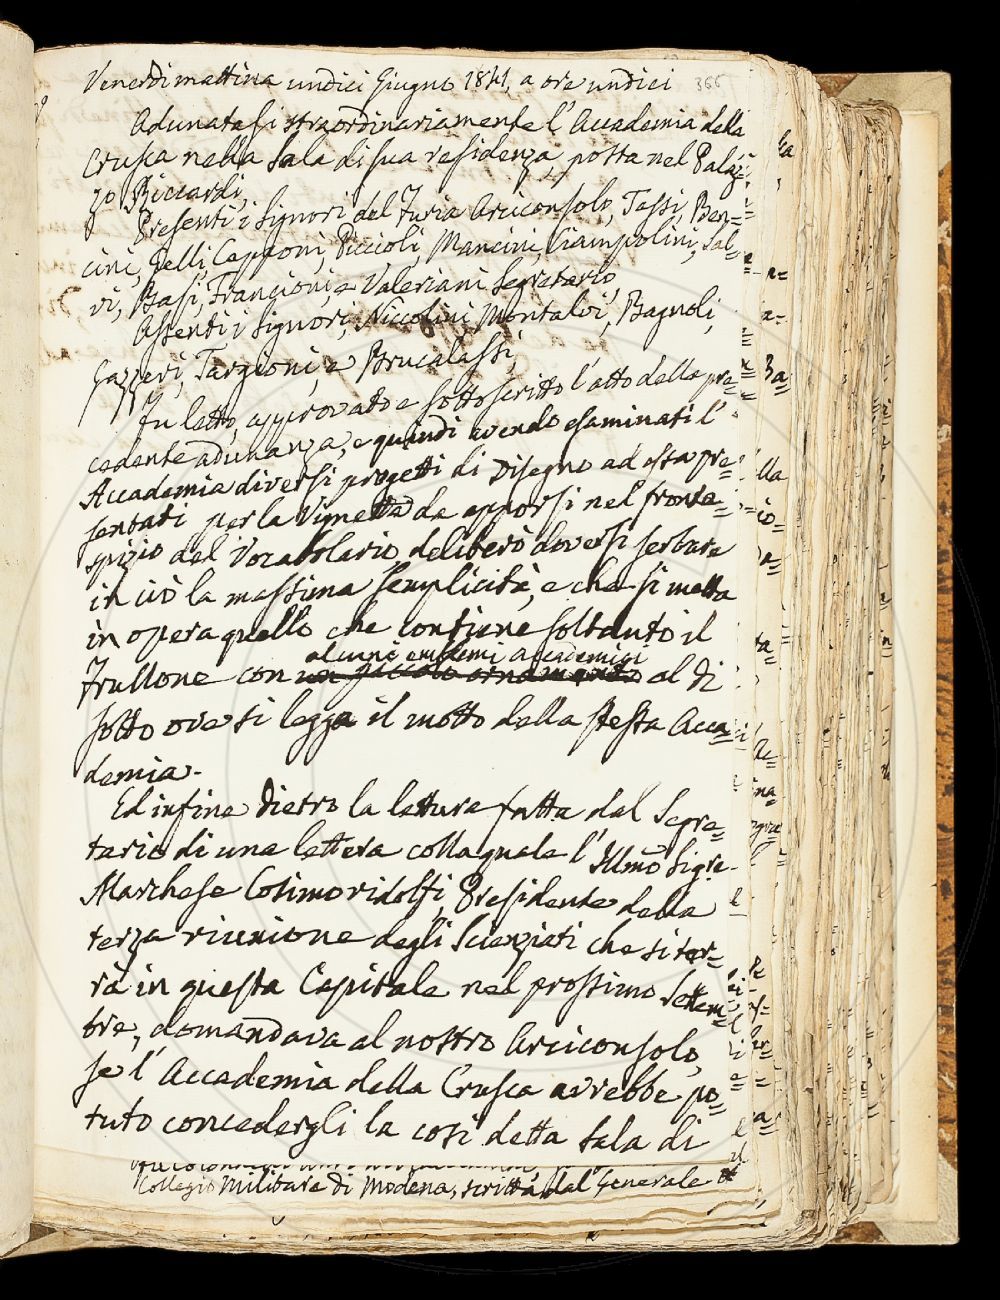 Venerdi mattina undici Giugno 1841, a ore undici
366
Adunatasi straordinariamente l'Accademia della
Crusca nella sala di sua residenza, posta nel Palaz=
zo Riccardi,
Presenti i Signori del Furia Arciconsolo, Tassi, Ben=
cini, Gelli, Capponi, Piccioli, Mancini, Ciampolini, Sal=
vi, Basi, Francioni, e Valeriani Segretario,
Assenti i Signori, Niccolini, Montalvi, Bagnoli,
Gazzeri, Targioni, e Brucalassi,
Fu letto, approvato e sottoscritto l'atto della pre=
cedente adunanza, e quindi avendo esaminati l'
Accademia diversi progetti di disegno ad essa pre=
sentati per la Vignetta da apporsi nel fronte=
spizio del Vocabolario, deliberò doversi serbare
in ciò la massima semplicità, e che si metta
in opera quello che contiene soltanto il
alcuni emblemi accademici
Frullone con un piccolo ornamento al di
sotto ove si legga il motto della stessa Acca=
demia.
Ed infine dietro la lettura fatta dal Segre=
tario di una lettera colla quale l'Illmo Sigre
Marchese Cosimo ridolfi, Presidente della
terza riunione degli Scienziati che si ter=
rà in questa Capitale nel prossimo Settem=
bre, domandava al nostro Arciconsolo,
se l'Accademia della Crusca avrebbe po=
tuto concedergli la così detta sala di
Collegio Militare di Modena, scritta dal Generale